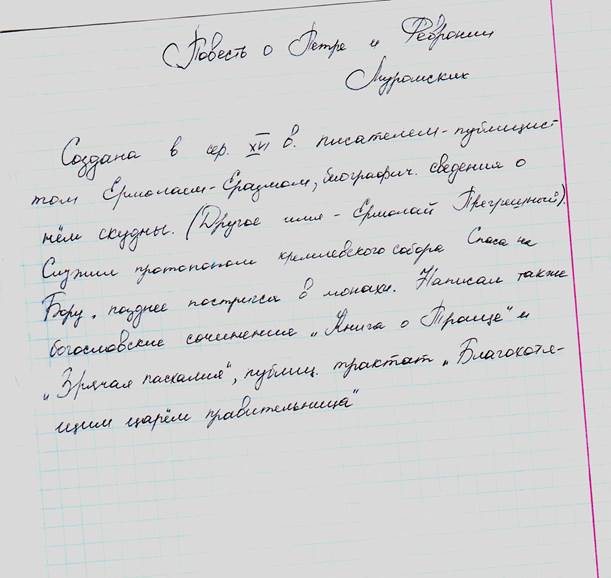 Повесть о Петре и Февронии
Муромских
Создана в сер. XVI в. писателем-публицист
том Ермолаем-Еразмом, биографич. сведения о
нём скудны. (Другое имя - Ермолай Прегрешный).
Служил протопопом кремлевского собора Спаса на
Бору, позднее постригся в монахи. Написал также
богословские сочинения „Книга о Троице" и
„Зрячая пасхалия", публиц. трактат „Благохотя-
щим царём правительница"